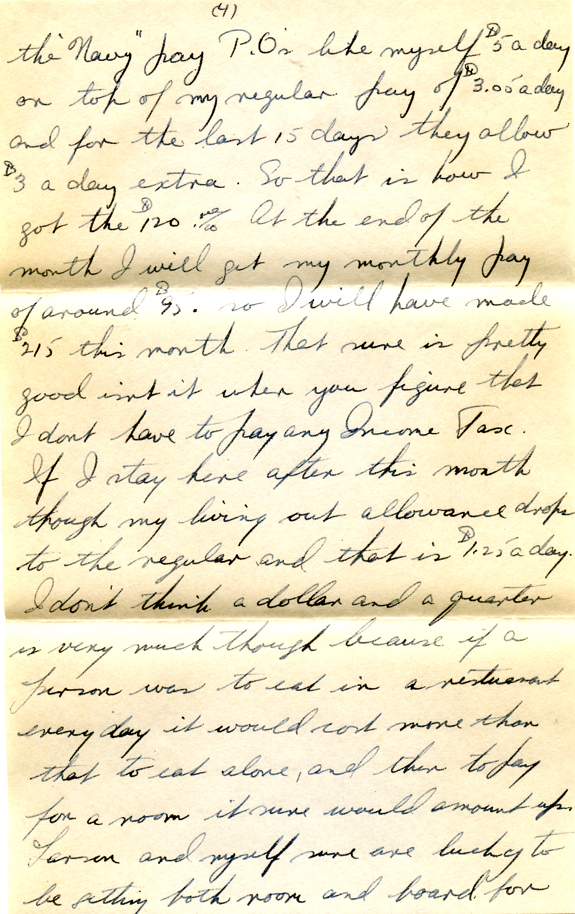 (4)
the "Navy" pay P.O's like myself $5 a day
on top of my regular pay of $3.05 a day
and for the last 15 days they allow
$3 a day extra. So that is how I
got the $120 no/00 At the end of the
month I will get my monthly pay
of around $95. so I will have made
$215 this month. That sure is pretty
good isnt it when you figure that
I dont have to pay any Income Tax.
If I stay here after this month
though my living out allowance drops
to the regular and that is $1.25 a day.
I don't think a dollar and a quarter
is very much though because if a
person was to eat in a restuarant
everyday it would cost more than
that to eat alone, and then to pay
for a room it sure would amount up.
Larson and myself sure are lucky to
be getting both room and board for